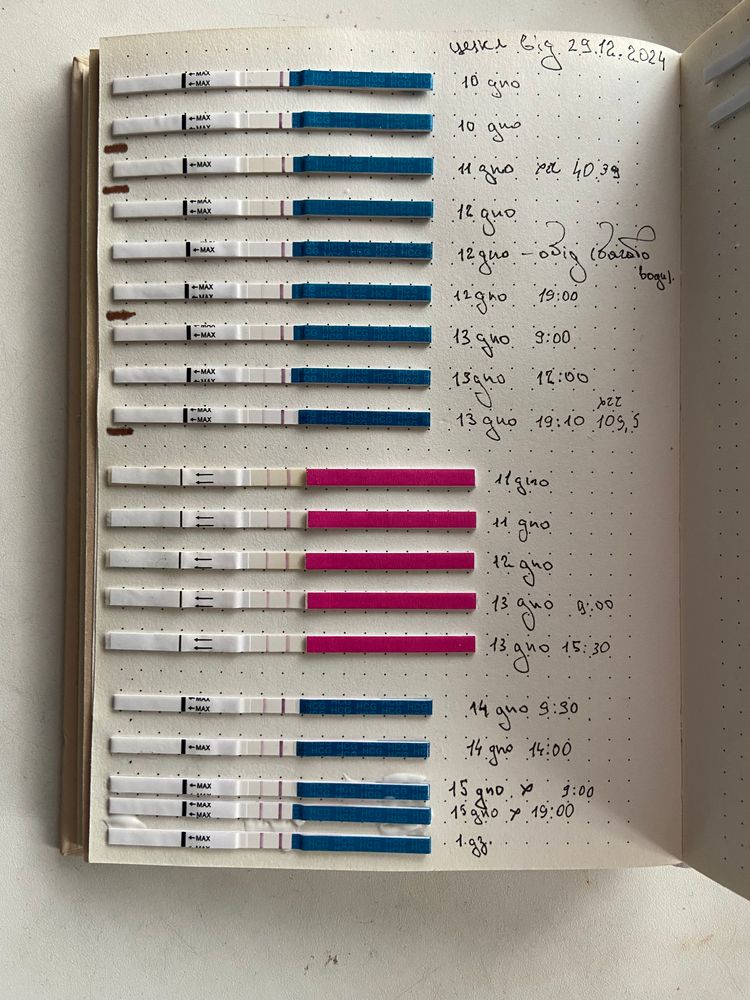 цикл від 29.12.2024
←MAX
←MAX
10 дпо
←MAX
HCG HCG
10 дпо
←MAX
11 дпо хгч 40.39
←MAX
12 дпо
←MAX
12 дпо – обід (багато води).
←MAX
12 дпо 19:00
←MAX
13 дпо 9:00
←MAX
13 дпо 12:00
←MAX
13 дпо 19:10 хгч 109,5
11 дпо
11 дпо
12 дпо
13 дпо 9:00
13 дпо 15:30
←MAX
HCG HCG HCG
14 дпо 9:30
←MAX
HCG HCG HCG HCG
14 дпо 14:00
←MAX
15 дпо х 9:00
←MAX
15 дпо х 19:00
←MAX
1.дз.